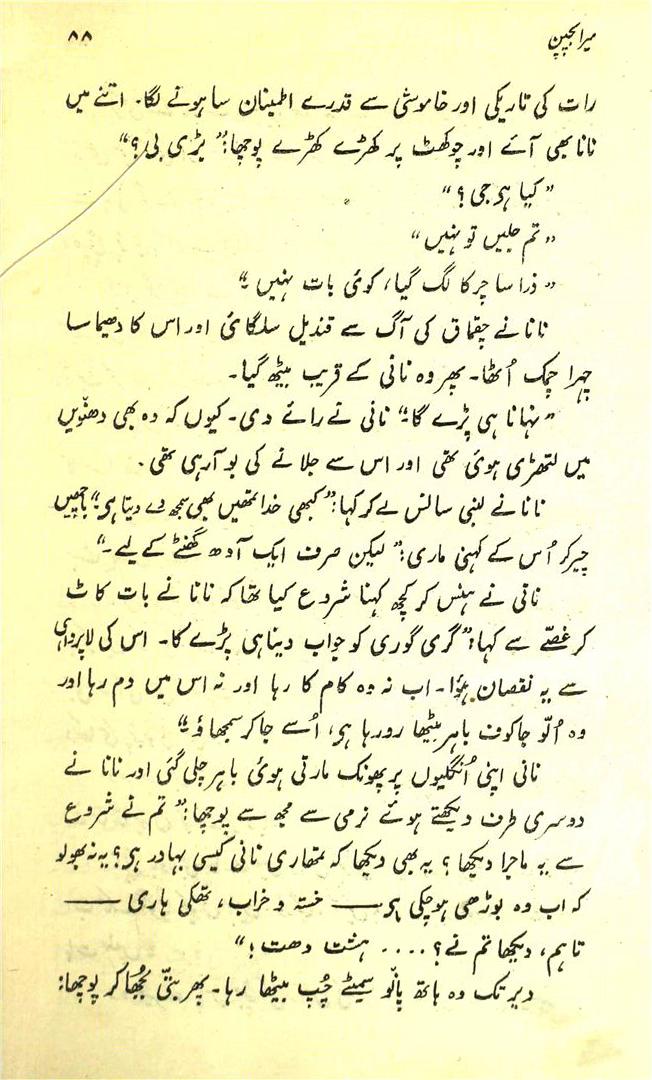 میرا بچپن ۸۸
رات کی تاریکی اور خاموشی سے قدرے اطمینان سا ہونے لگا۔ اتنے میں
نانا بھی آئے اور چوکھٹ پر کھڑے کھڑے پوچھا: ”بڑی بی؟“
”کیا ہو جی؟“
”تم جلیں تو نہیں“
”ذرا سا چرکا لگ گیا، کوئی بات نہیں۔“
نانا نے چقماق کی آگ سے قندیل سلگائی اور اس کا دھیما سا
چہرا چمک اُٹھا۔ پھر وہ نانی کے قریب بیٹھ گیا۔
”نہانا ہی پڑے گا۔“ نانی نے رائے دی۔ کیوں کہ وہ بھی دھنوّیں
میں لتھڑی ہوئی تھی اور اس سے جلانے کی بو آرہی تھی۔
نانا نے لنبی سانس لے کر کہا: ”کبھی خدا تمھیں بھی سمجھ دے دیتا ہی“ باچھیں
چیر کر اُس کے کہنی ماری: ”لیکن صرف ایک آدھ گھنٹے کے لیے۔“
نانی نے ہنس کر کچھ کہنا شروع کیا تھا کہ نانا نے بات کاٹ
کر غصّے سے کہا: ”گری گوری کو جواب دینا ہی پڑے گا۔ اس کی لاپروائی
سے یہ نقصان ہؤا۔ اب نہ وہ کام کا رہا اور نہ اس میں دم رہا اور
وہ اُلّو جاکوف باہر بیٹھا رو رہا ہی، اُسے جا کر سمجھاؤ۔“
نانی اپنی اُنگلیوں پر پھونک مارتی ہوئی باہر چلی گئی اور نانا نے
دوسری طرف دیکھتے ہوئے نرمی سے مجھ سے پوچھا: ”تم نے شروع
سے یہ ماجرا دیکھا؟ یہ بھی دیکھا کہ تمھاری نانی کیسی بہادر ہی؟ یہ نہ بھولو
کہ اب وہ بوڑھی ہو چکی ہی —— خستہ و خراب، تھکی ہاری ——
تاہم، دیکھا تم نے؟ .... ہشت دھت!“
دیر تک وہ ہاتھ پانّو سمیٹے چُپ بیٹھا رہا۔ پھر بتّی بُجھا کر پوچھا: